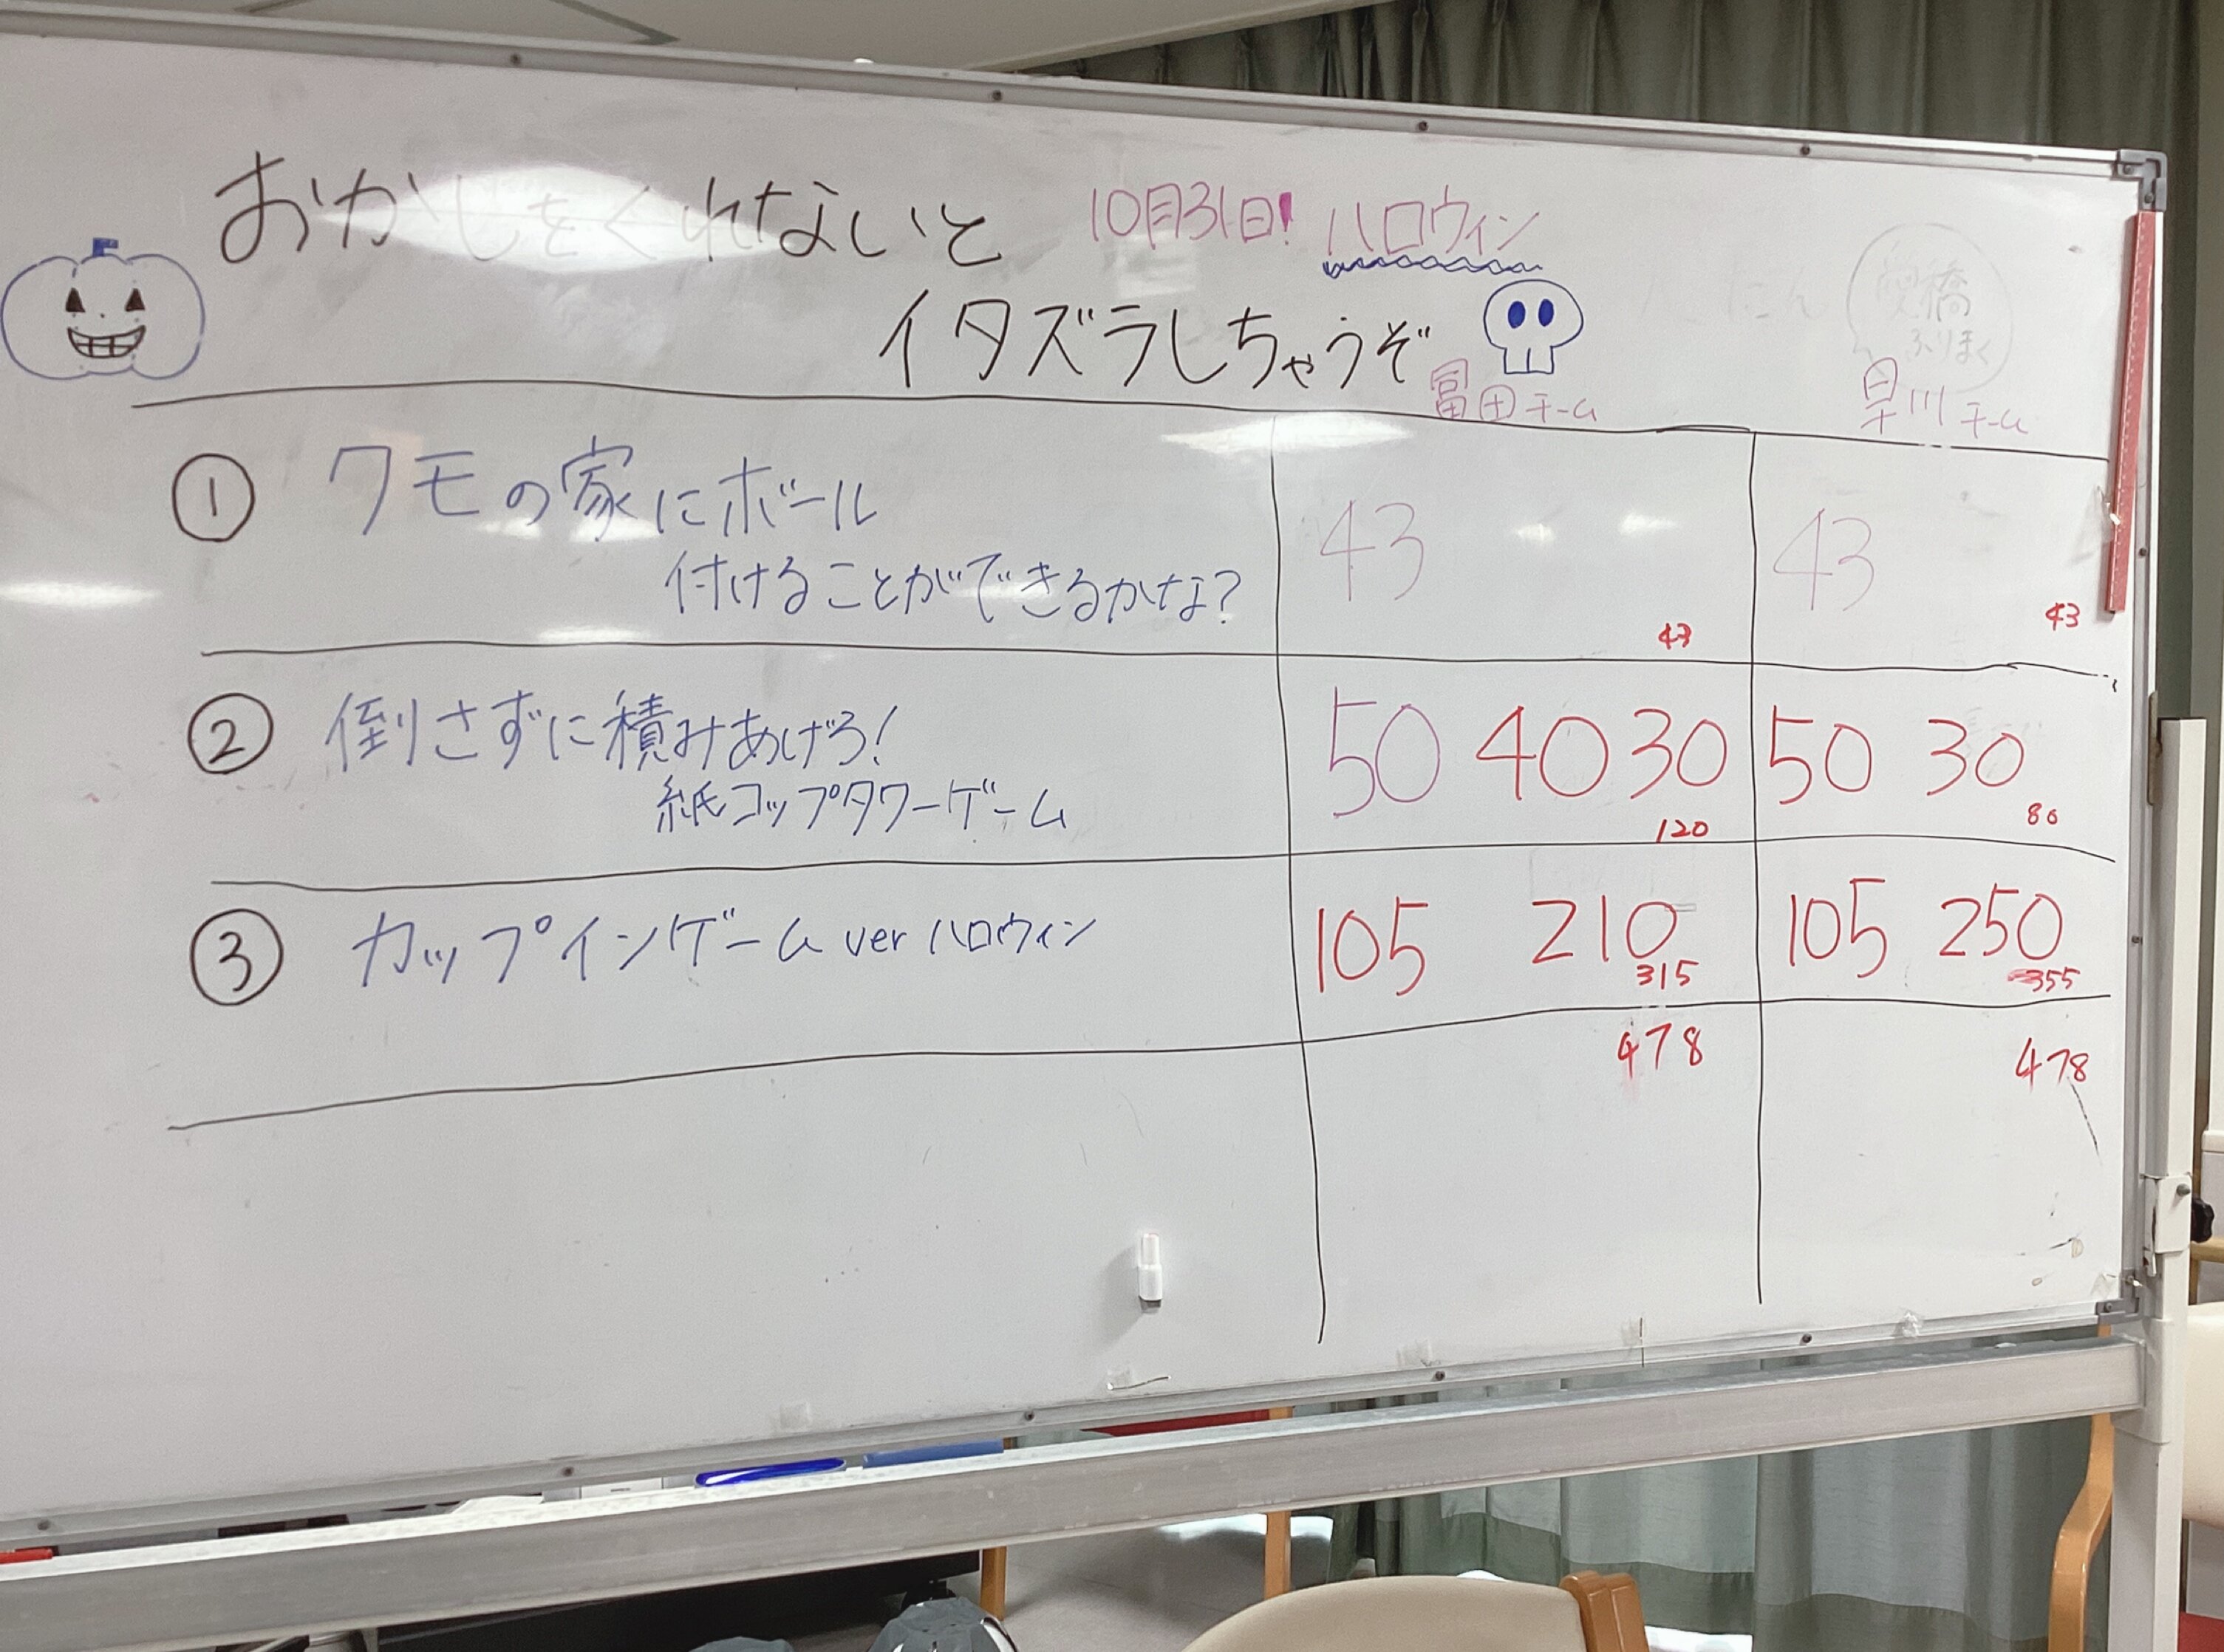 おかしをくれないと 10月31日! ハロウィン
イタズラしちゃうぞ
冨田チーム 早川チーム
① クモの家にボール
付けることができるかな?
43 43
43 43
② 倒さずに積みあげろ!
紙コップタワーゲーム
50 40 30 50 30
120 80
③ カップインゲーム ver ハロウィン
105 210 105 250
315 355
478 478